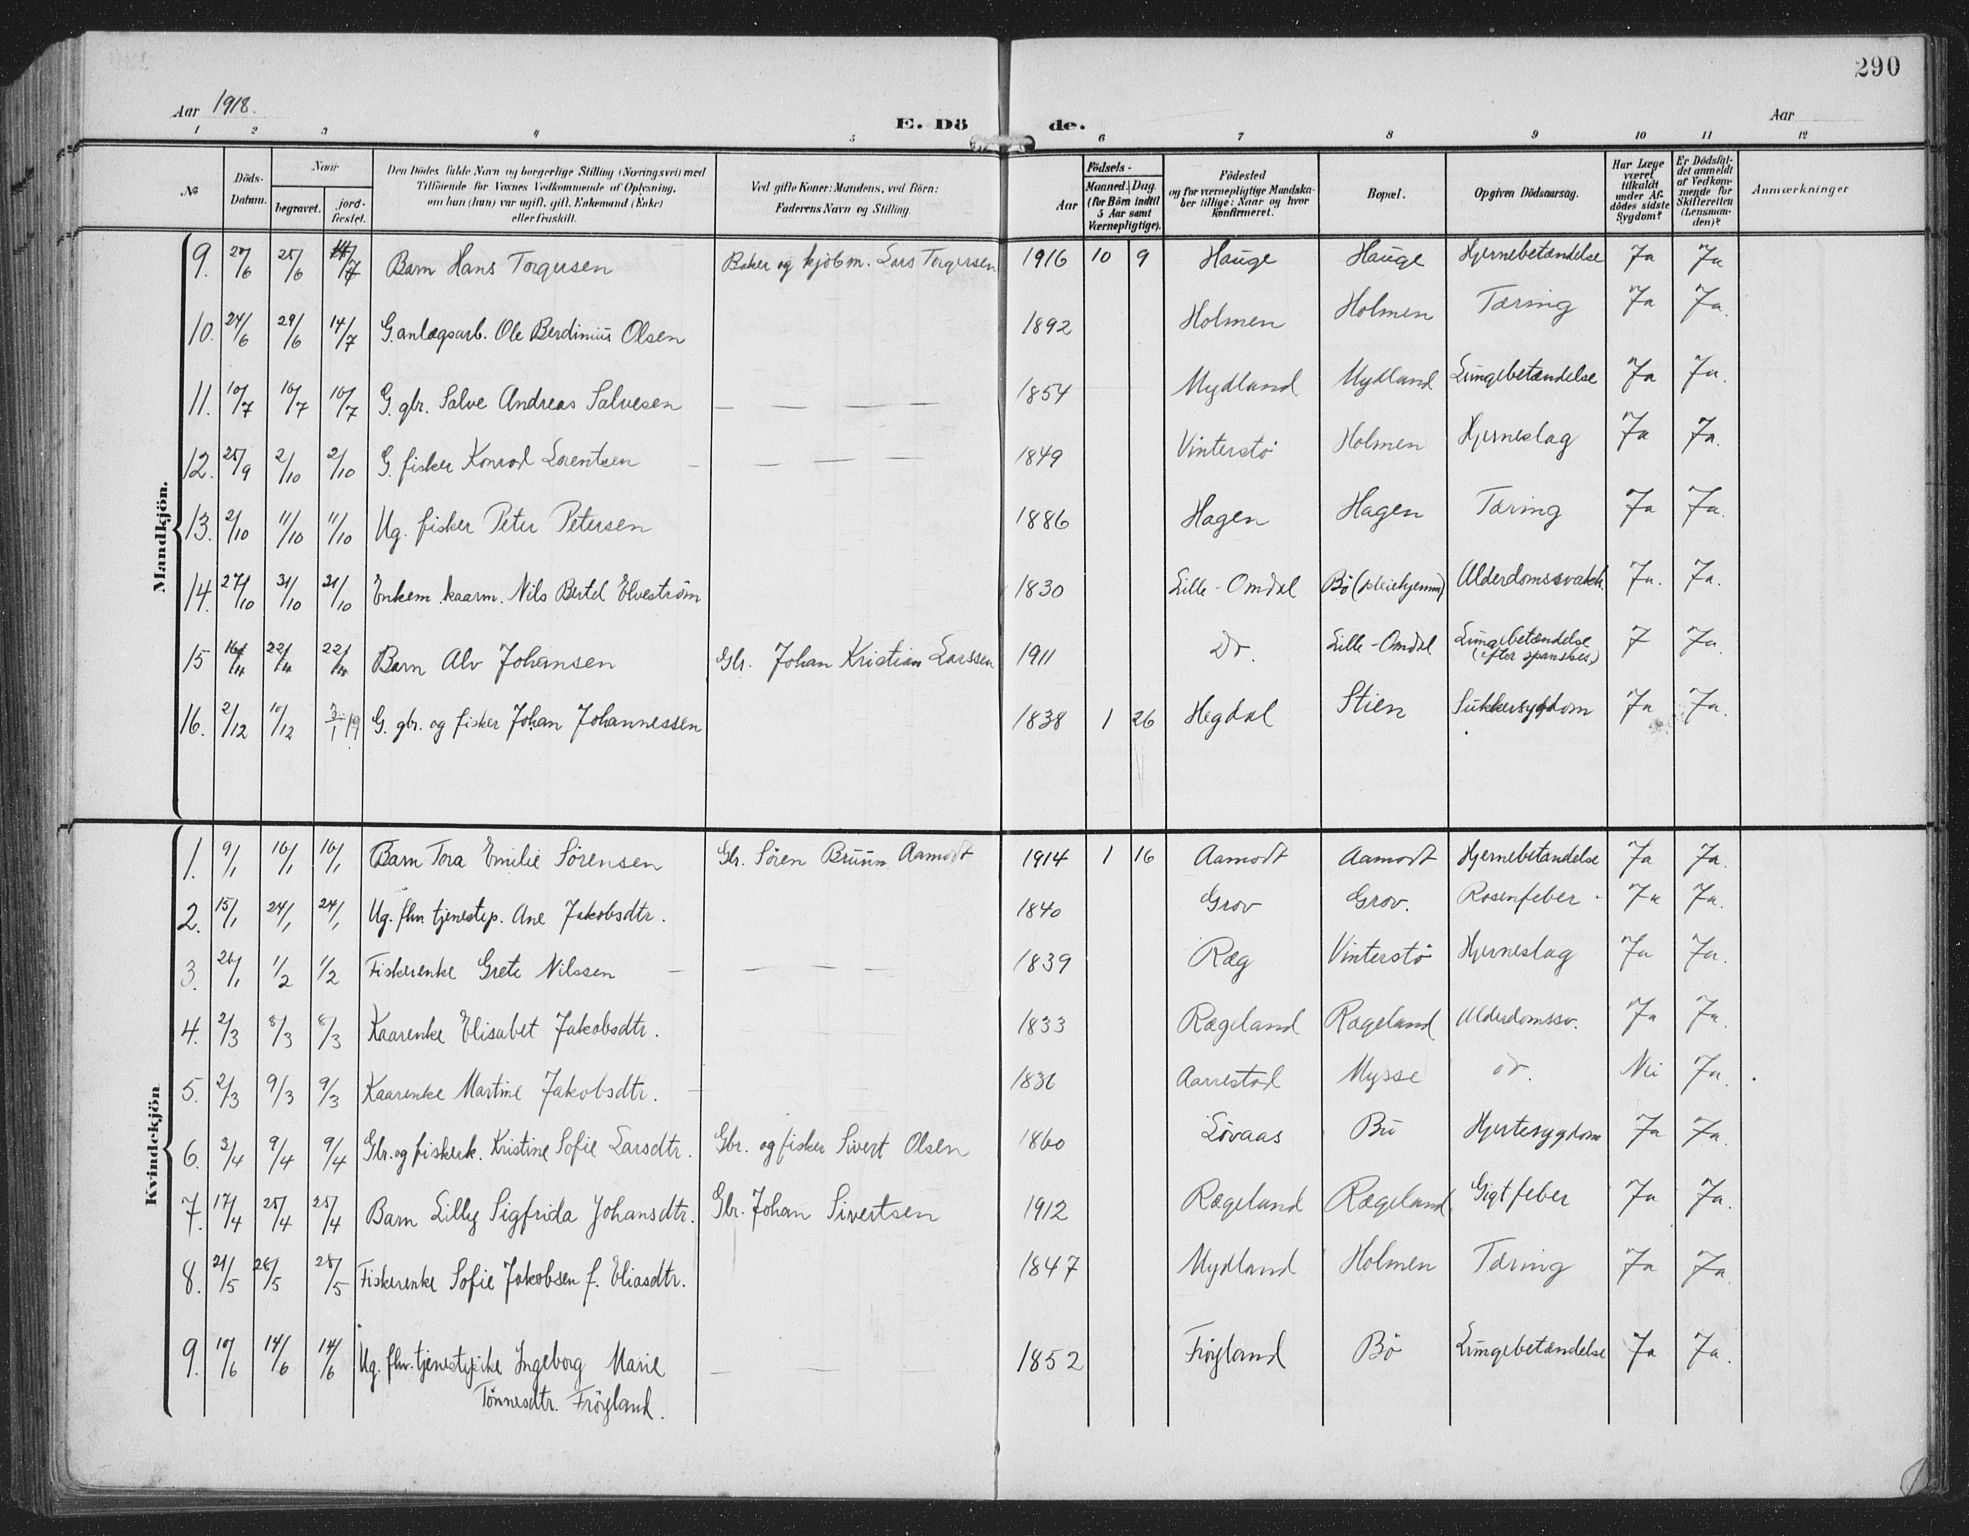 290
Aar 1918.
E. Dö de.
Aar
1 2 3 4 5 6 7 8 9 10 11 12
No
Döds-
Datum.
Naar
begravet.
jord-
fæstet.
Den Dödes fulde Navn og borgerlige Stilling (Næringsvei) med
Tilföiende for Voxnes Vedkommende af Oplysning,
om han (hun) var ugift, gift, Enkemand (Enke)
eller fraskilt.
Ved gifte Koner: Mandens, ved Börn:
Faderens Navn og Stilling.
Födsels-
Aar
Maaned. Dag.
(for Börn indtil
5 Aar samt
Værnepligtige).
Födested
og for værnepligtige Mandska-
ber tillige: Naar og hvor
konfirmeret.
Bopæl.
Opgiven Dödsaarsag.
Har Læge
været
tilkaldt
under Af-
dödes sidste
Sygdom?
Er Dödsfal-
det anmeldt
af Vedkom-
mende for
Skifteretten
(Lensman-
den)?
Anmærkninger
Mandkjön.
9. 25/6 Barn Hans Torgersen Baker og kjøbm. Lars Torgersen 1916 10 9 Hauge Hauge Hjernebetændelse Ja Ja
10. 24/6 29/6 14/7 G. anlægsarb. Ole Berdinius Olsen 1892 Holmen Holmen Tæring Ja Ja.
11. 10/7 16/7 16/7 G. gbr. Salve Andreas Salvesen — — — — 1854 Mydland Mydland Lungebetændelse Ja Ja.
12. 25/9 2/10 2/10 G. fisker Konrad Lorentsen — — — — 1849 Vinterstø Holmen Hjerneslag Ja Ja.
13. 2/10 11/10 11/10 Ug. fisker Peter Petersen 1886 Hagen Hagen Tæring Ja Ja.
14. 27/10 31/10 31/10 Enkem. kaarm. Nils Bertel Elveström 1830 Lille-Omdal Bö (pleiehjemm) Alderdomssvakh. Ja. Ja.
15 22/11 22/11 Barn Alv Johansen Gbr. Johan Kristian Larssen 1911 Do. Lille-Omdal Lungebetændelse J Ja.
(efter spanskes.)
16. 2/12 10/12 3/1 19 G. gbr. og fisker Johan Johannessen 1838 1 26 Hegdal Stien Sukkersygdom Ja Ja.
Kvindekjön
1. 9/1 16/1 16/1 Barn Tora Emilie Sörensen Gbr. Sören Bruun Aamodt 1914 1 16 Aamodt Aamodt Hjernebetændelse Ja Ja.
2. 15/1 24/1 24/1 Ug. fhv. tjenestep. Ane Jakobsdtr. 1840 Grov Grov. Rosenfeber Ja Ja.
3. 26/1 1/2 1/2 Fiskerenke Grete Nilssen — — — — 1839 Ræg Vinterstø Hjerneslag Ja Ja.
4. 2/3 8/3 8/3 Kaarenke Elisabet Jakobsdtr. 1833 Rægeland Rægeland Alderdomssv. Ja Ja.
5. 2/3 9/3 9/3 Kaarenke Martine Jakobsdtr. 1836 Aarrestad Mysse do. Nei Ja.
6. 3/4 9/4 9/4 Gbr. og fiskerk. Kristine Sofie Larsdtr. Gbr. og fisker Sivert Olsen 1860 Lövaas Bu Hjertesygdom Ja Ja.
7. 17/4 25/4 25/4 Barn Lilly Sigfrida Johansdtr. Gbr. Johan Sivertsen 1912 Rægeland Rægeland Gigtfeber Ja Ja.
8. 21/5 28/5 28/5 Fiskerenke Sofie Jakobsen f. Eliasdtr. 1847 Mydland Holmen Tæring Ja Ja.
9. 10/6 14/6 14/6 Ug. fhv. tjenestepike Ingeborg Marie — — — 1852 Fröyland Bö Lungebetændelse Ja Ja.
Tönnesdtr. Fröyland.